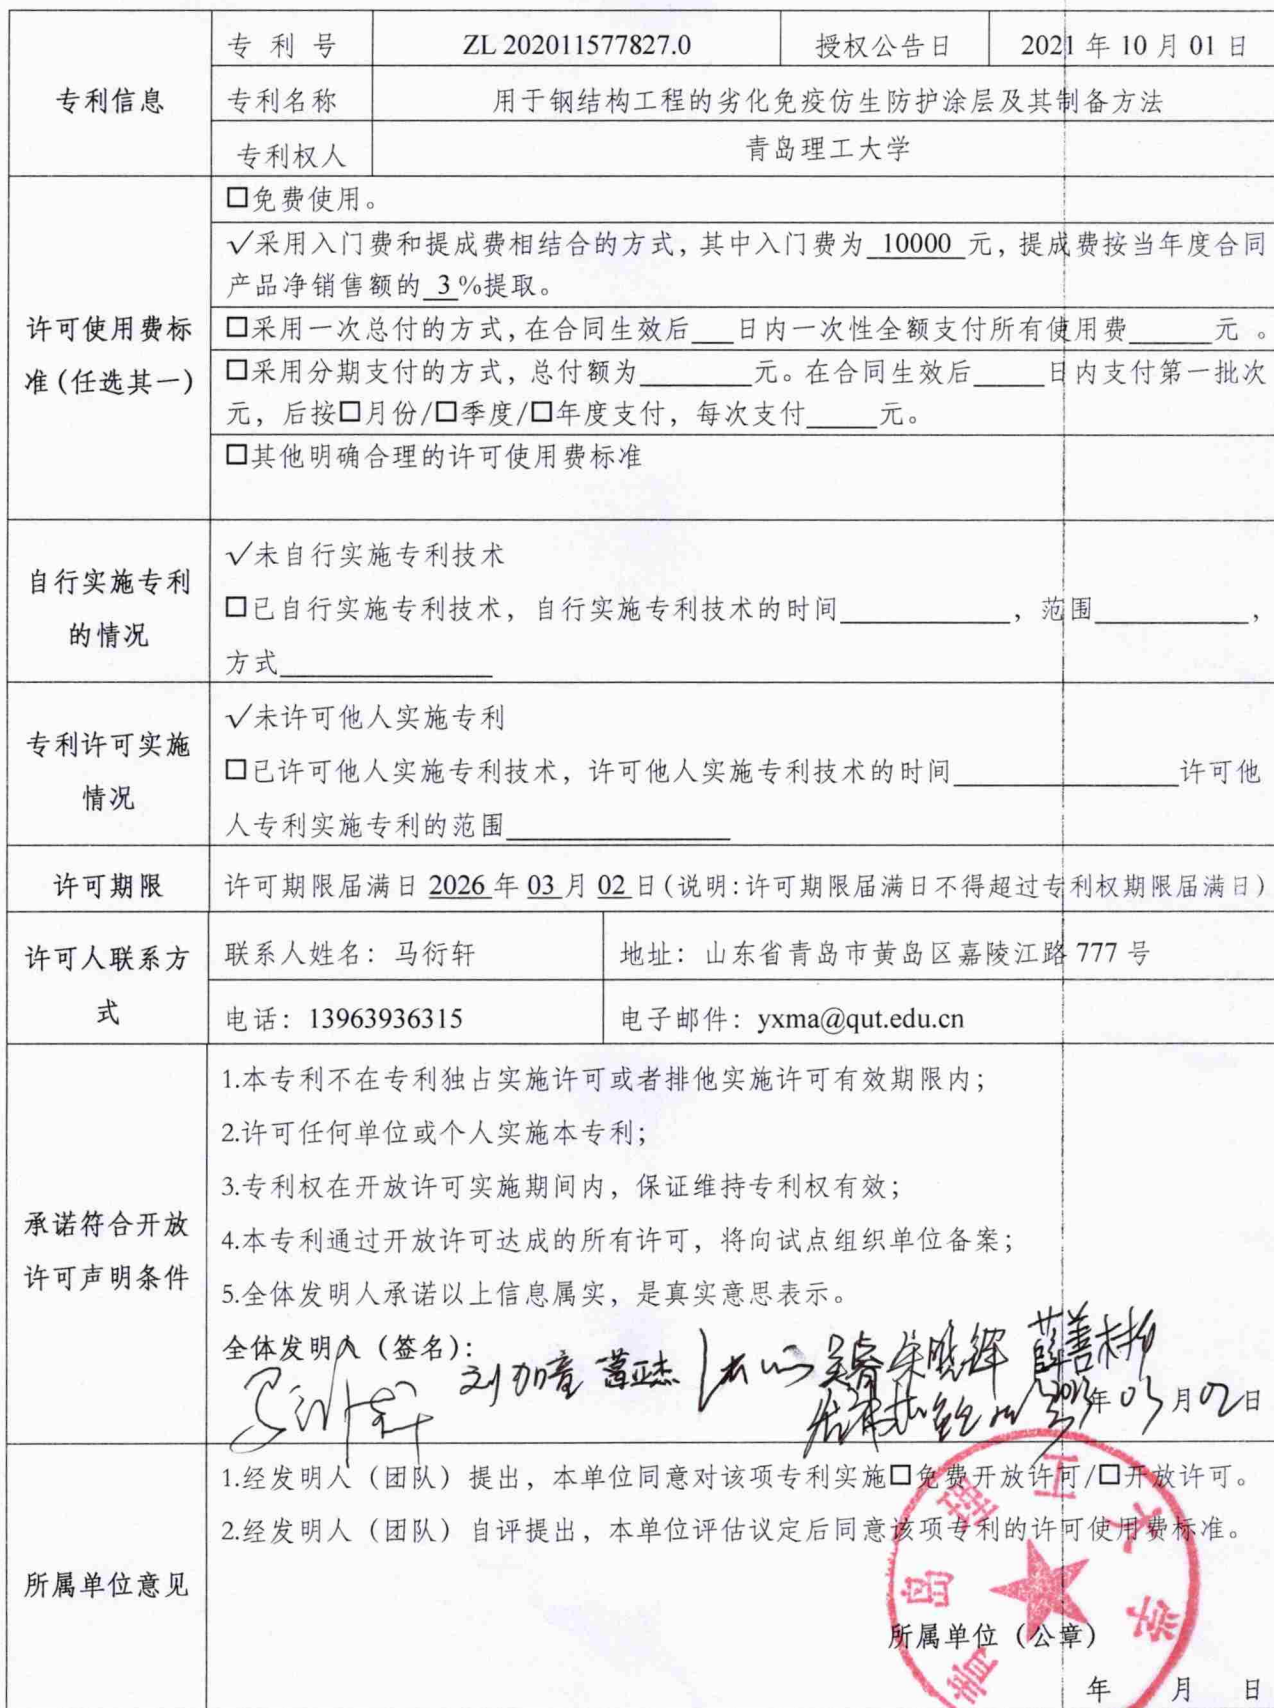 专利信息
专 利 号 ZL 202011577827.0 授权公告日 2021 年 10 月 01 日
专利名称 用于钢结构工程的劣化免疫仿生防护涂层及其制备方法
专利权人 青岛理工大学
许可使用费标
准（任选其一）
□免费使用。
√采用入门费和提成费相结合的方式，其中入门费为 10000 元，提成费按当年度合同
产品净销售额的 3 %提取。
□采用一次总付的方式，在合同生效后___日内一次性全额支付所有使用费______元 。
□采用分期支付的方式，总付额为________元。在合同生效后_____日内支付第一批次
元，后按□月份/□季度/□年度支付，每次支付_____元。
□其他明确合理的许可使用费标准
自行实施专利
的情况
√未自行实施专利技术
□已自行实施专利技术，自行实施专利技术的时间____________，范围___________，
方式_______________
专利许可实施
情况
√未许可他人实施专利
□已许可他人实施专利技术，许可他人实施专利技术的时间________________许可他
人专利实施专利的范围________________
许可期限 许可期限届满日 2026 年 03 月 02 日（说明：许可期限届满日不得超过专利权期限届满日）
许可人联系方
式
联系人姓名：马衍轩 地址：山东省青岛市黄岛区嘉陵江路 777 号
电话：13963936315 电子邮件：yxma@qut.edu.cn
承诺符合开放
许可声明条件
1.本专利不在专利独占实施许可或者排他实施许可有效期限内；
2.许可任何单位或个人实施本专利；
3.专利权在开放许可实施期间内，保证维持专利权有效；
4.本专利通过开放许可达成的所有许可，将向试点组织单位备案；
5.全体发明人承诺以上信息属实，是真实意思表示。
全体发明人（签名）：
马衍轩 刘加童 葛亚杰 吴睿 朱晓辉 薛善彬
2023年 03 月 02 日
所属单位意见
1.经发明人（团队）提出，本单位同意对该项专利实施□免费开放许可/□开放许可。
2.经发明人（团队）自评提出，本单位评估议定后同意该项专利的许可使用费标准。
青岛理工大学
所属单位（公章）
年 月 日